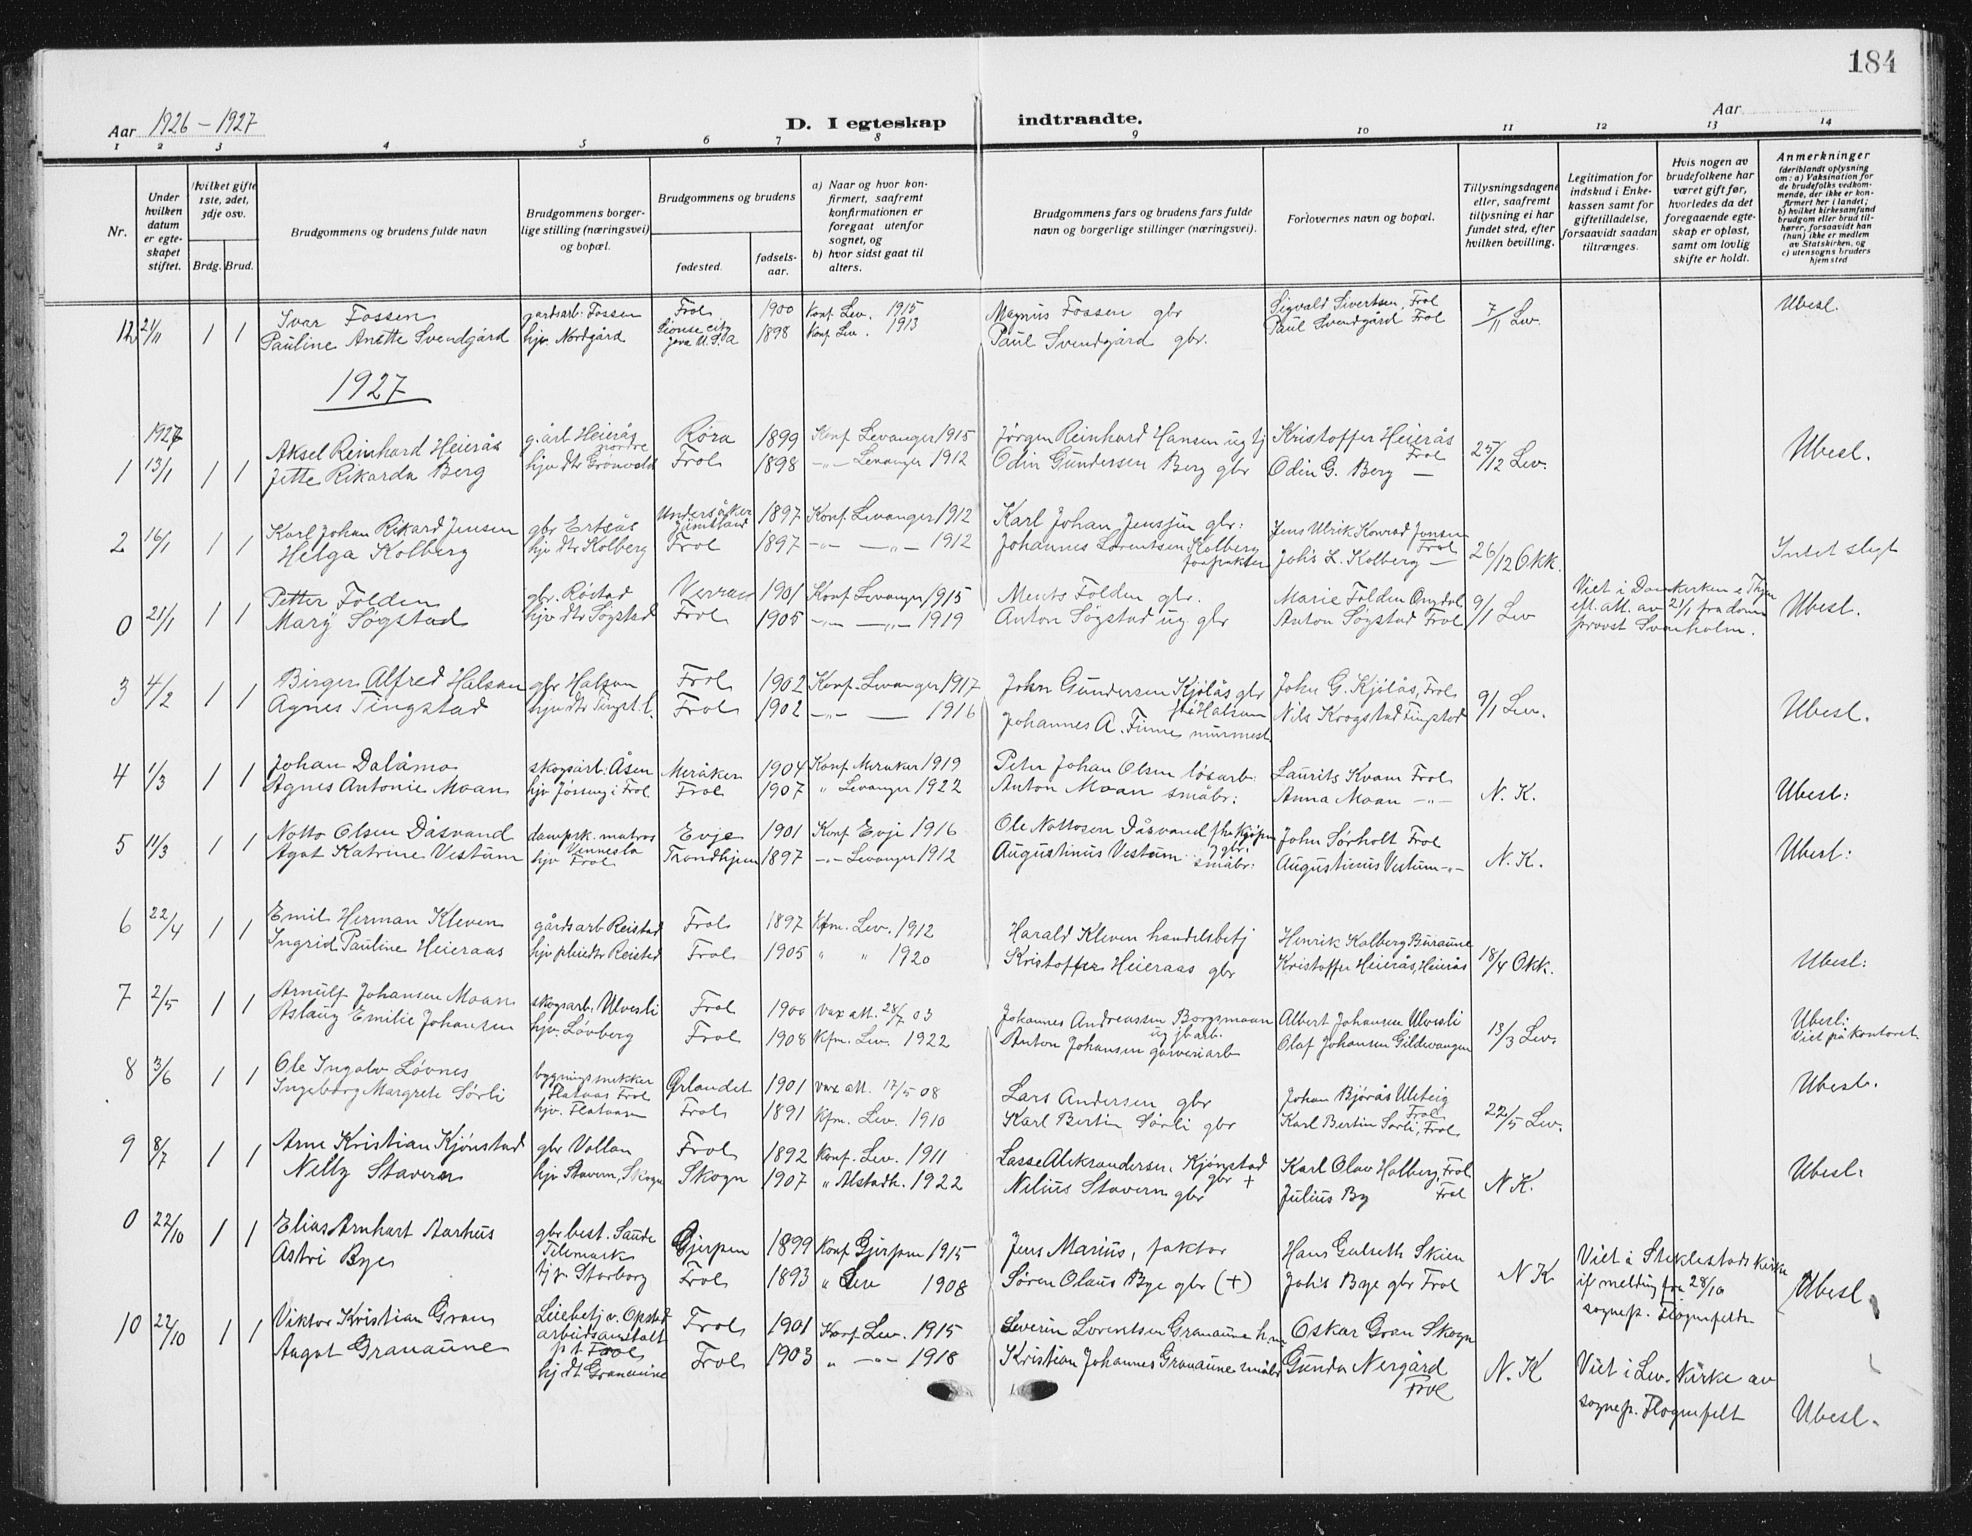 184
Aar 1926 – 1927
D. I egteskap indtraadte.
Aar
1 2 3 4 5 6 7 8 9 10 11 12 13 14
Nr.
Under hvilken datum er egteskapet stiftet.
Hvilket gifte 1ste, 2det, 3dje osv.
Brdg. Brud.
Brudgommens og brudens fulde navn
Brudgommens borgerlige stilling (næringsvei) og bopæl.
Brudgommens og brudens
fødested.
fødselsaar.
a) Naar og hvor konfirmert, saafremt konfirmationen er foregaat utenfor sognet, og
b) hvor sidst gaat til alters.
Brudgommens fars og brudens fars fulde navn og borgerlige stillinger (næringsvei).
Forlovernes navn og bopæl.
Tillysningsdagene eller, saafremt tillysning ei har fundet sted, efter hvilken bevilling.
Legitimation for indskud i Enkekassen samt for giftetilladelse, forsaavidt saadan tiltrænges.
Hvis nogen av brudefolkene har været gift før, hvorledes da det foregaaende egteskap er opløst, samt om lovlig skifte er holdt.
Anmerkninger (deriblandt oplysning om: a) Vaksination for de brudefolks vedkommende, der ikke er konfirmert her i landet; b) hvilket kirkesamfund brudgom eller brud tilhører, forsaavidt han (hun) ikke er medlem av Statskirken, og c) utensogns bruders hjemsted
12 21/11 1 1 Ivar Fossen gardsarb. Fossen Frol 1900 Konf. Lev. 1915 Magnus Fossen gbr Sigvald Sivertsen, Frol 7/11 Lev. Ubesl.
Pauline Anette Svendgård hjv. Nordgård Sioux city U.S.A 1898 Konf. Lev. 1913 Paul Svendgård gbr. Paul Svendgård Frol
1927
1927
1 13/1 1 1 Aksel Reinhard Heierås g.arb Heierås nordre Røra 1899 Konf Levanger 1915 Jørgen Reinhard Hansen ug tj Kristoffer Heierås Frol 25/12 Lev. Ubesl.
Jette Rikarda Berg hjv dtr Grønvold Frol 1898 -„- Levanger 1912 Odin Gundersen Berg gbr Odin G. Berg —
2 16/1 1 1 Karl Johan Rikard Jensen gbr Ertsås Undersåker Jämtland 1897 Konf. Levanger 1912 Karl Johan Jensen gbr: Jens Ulrik Konrad Jensen Frol 26/12 Okk. Intet slegt
Helga Kolberg hjv dtr Kolberg Frol 1897 -„- -„- 1912 Johannes Lorentsen Kolberg Johs L. Kolberg —
0 21/1 1 1 Petter Folden gbr. Røstad Verran 1901 Konf Levanger 1915 Ments Folden gbr. Marie Folden 9/1 Lev Viet i Domkirken i Thjm eft. att. av 21/1 fra domprovst Svanholm. Ubesl.
Mary Søgstad hjv dtr Søgstad Frol 1905 -„- -„- 1919 Anton Søgstad ug. gbr Anton Søgstad Frol
3 4/2 1 1 Birger Alfred Halsan gbr Halsan Frol 1902 Konf Levanger 1917 John Gundersen Kjølås gbr John G. Kjølås, Frol 9/1 Lev. Ubesl.
Agnes Tingstad hjv dtr Tingst. Frol 1902 -„- — 1916 Johannes A. Finne murmest. Nils Krogstad Tingstad
4 1/3 1 1 Johan Dalåmo skogsarb: Åsen Meråker 1904 Konf Meraker 1919 Peter Johan Olsen løsarb: Laurits Kvam Frol N. K. Ubesl:
Agnes Antonie Moan hjv Jøssing i Frol Frol 1907 „ Levanger 1922 Anton Moan småbr: Anna Moan -„-
5 11/3 1 1 Notto Olsen Dåsvand dampsk. matros Vennesla Evje 1901 Konf Evje 1916 Ole Nottosen Dåsvand gbr. John Sørholt Frol N. K. Ubesl:
Agot Katrine Vestum hjv Frol Trondhjem 1897 -„- Levanger 1912 Augustinus Vestum småbr: Augustinus Vestum -„-
6 22/4 1 1 Emil Herman Kleven gårdsarb Reistad Frol 1897 Kfm. Lev. 1912 Harald Kleven handelsbetj Henrik Kolberg Buraune 18/4 Okk. Ubesl:
Ingrid Pauline Heieraas hjv pleiedtr Reistad Frol 1905 „ „ 1920 Kristoffer Heieraas gbr Kristoffer Heierås, Heierås
7 2/5 1 1 Arnulf Johansen Moan skogsarb. Ulvesli Frol 1900 vax att. 28/7 03 Johannes Andreassen Borgsmoan ug jbarb. Albert Johansen Ulvesli 13/3 Lev. Ubesl: Viet på kontoret
Aslaug Emilie Johansen hjv. Løvberg Frol 1908 Kfm. Lev. 1922 Anton Johansen garveriarb Olaf Johansen Gildevangen
8 3/6 1 1 Ole Ingolv Løvnes Flataas Frol Ørlandet 1901 vax att. 17/5 08 Lars Andersen gbr Johan Bjørås Ulsteig Frol 22/5 Lev. Ubesl.
Ingeborg Margrete Sørli hjv. Flataas Frol 1891 Kfm. Lev. 1910 Karl Bertin Sørli gbr Karl Bertin Sørli, Frol
9 8/7 1 1 Arne Kristian Kjønstad gbr Vollan Frol 1892 Konf. Lev. 1911 Lasse Aleksandersen Kjønstad gbr + Karl Olav Holberg, Frol N K. Ubesl.
Nelly Stavern hjv Stavern, Skogn Skogn 1907 „ Alstadh. 1922 Nilius Stavern gbr Julius By Frol
0 22/10 1 1 Elias Arnhart Aarhus gbr best. Saude Telemark Gjerpen 1899 Konf Gjerpen 1915 Jens Marius, faktor Hans Gulseth Skien N K Viet i Stiklestads kirke if melding fra 28/10 sognep. Flognfeldt Ubesl
Astri Bye hjv. Storborg Frol 1893 „ Lev 1908 Søren Olaus Bye gbr (+) Johs Bye gbr Frol
10 22/10 1 1 Viktor Kristian Gran arbeidsanstalt p.t. Frol Frol 1901 Konf Lev. 1915 Severin Lorentsen Granaune Oskar Gran Skogn N. K Viet i Lev. kirke av sognep. Flognfelt Ubesl.
Aagot Granaune hj dt Granaune Frol 1903 „ -„- 1918 Kristian Johannes Granaune småbr Gunda Nergård Frol